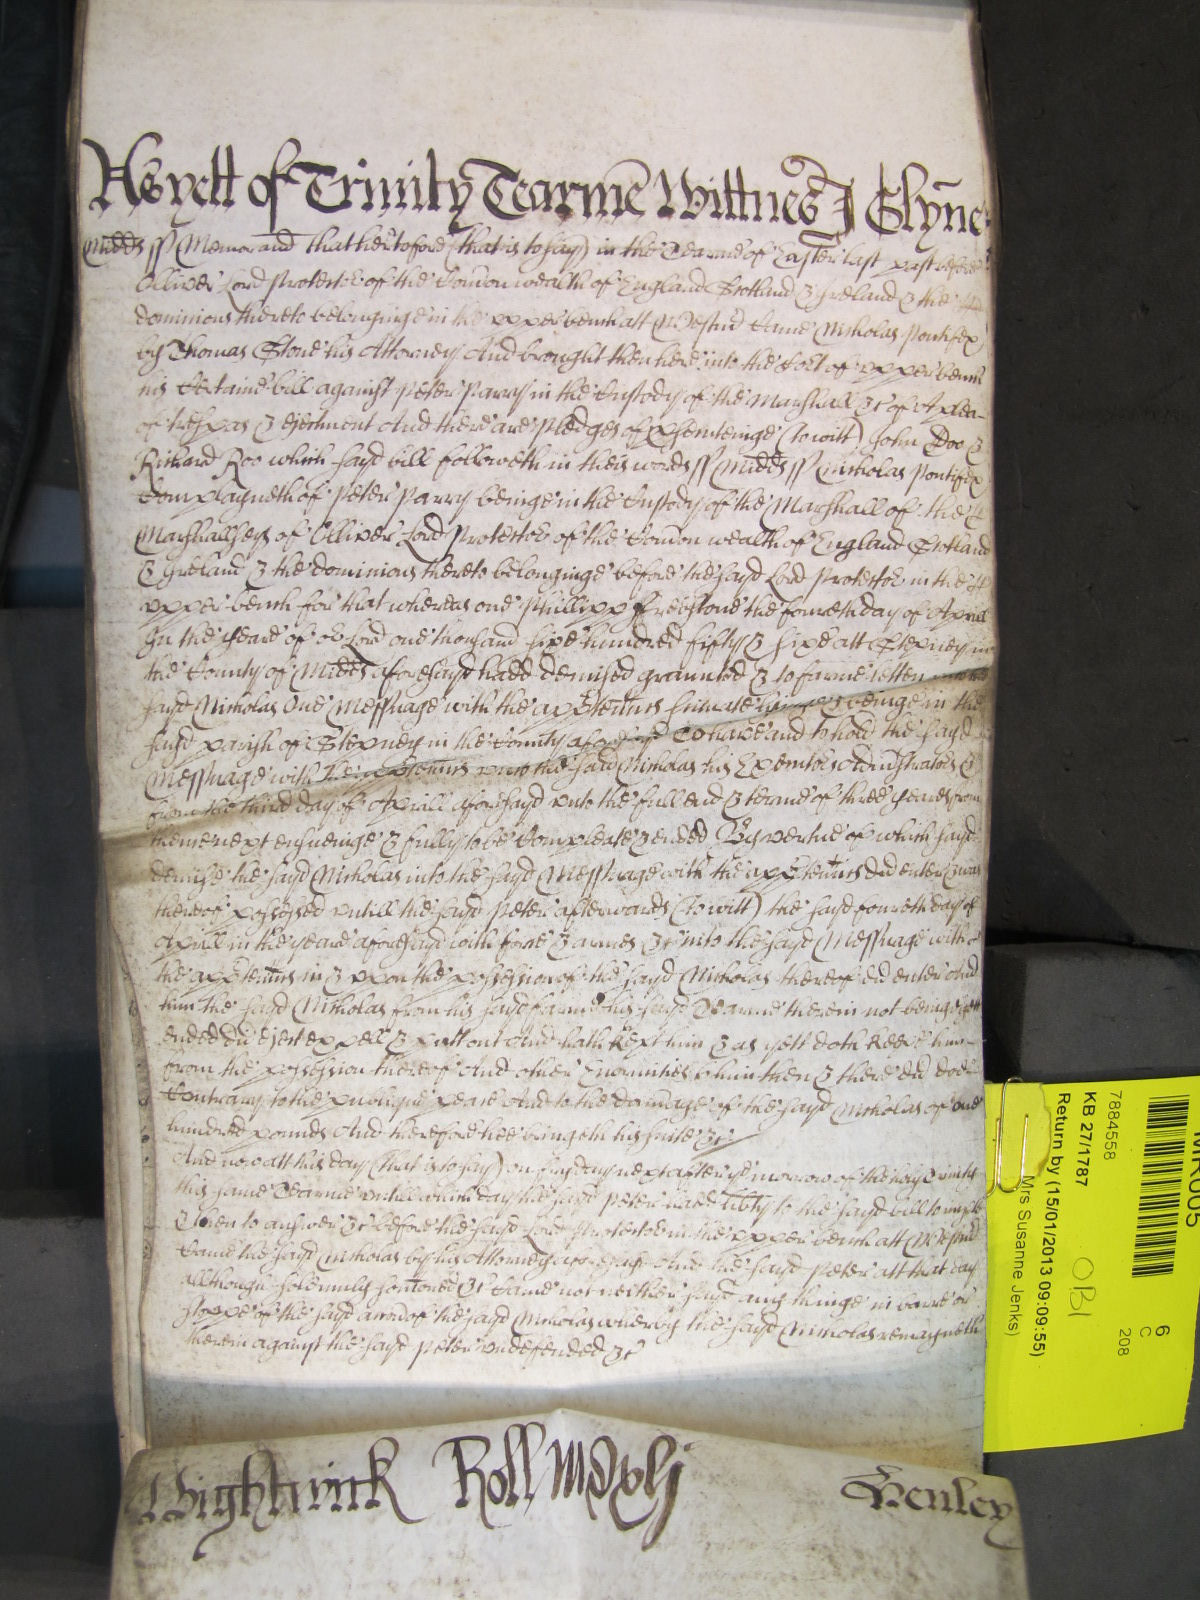 As yett of Trinity Tearme Wittnes J Glyne
Midds ss Memorand That heretofore (that is to say) in the Tearme of Easter last past before
Olliver Lord Protector of the Comon wealth of England Scotland & Ireland & the
dominions thereto belonginge in the upper bench att Westmr Came Nicholas Pontifex
by Thomas Stone his Attorney And brought then here into the Cort of upper bench
his Certaine bill against Peter Parry in the Custody of the Marshall &c of A plea
of trespas & ejectment And there are Pledges of (to witt) John Doo &
Richard Roo which sayd bill followeth in theis words ss Midds ss Nicholas Pontifex
Complayneth of Peter Parry beinge in the Custody of the Marshall of the
Marshallseys of Olliver Lord Protector of the Comon wealth of England Scotland
& Ireland & the dominions thereto belonginge before the sayd Lord Protector in the
upper bench for that whereas one Phillipp Freestone the fourth day of Aprill
In the yeare of or Lord one thousand sixe hundred fifty & sixe att Stepney in
the County of Midds aforesayd hadd demised graunted & to farme letten
sayd Nicholas One Messuage with the apptennts scituate & beinge in the
sayd parish of Stepney in the County aforesayd To have and to hold the sayd
Messuage with the apptennts unto the said Nicholas his Executors Administrators &
from the third day of Aprill aforesayd unto the full end & terme of three yeares from
thence next ensueinge & fully to be Compleate & ended By vertue of which sayd
demise the sayd Nicholas into the sayd Messuage with the apptennts did enter & was
thereof possessed untill the sayd Peter afterwards (to witt) the sayd fourth day of
Aprill in the yeare aforesayd with force & armes &c into the sayd Messuage with
the apptennts in & upon the possession of the sayd Nicholas thereof did enter And
him the said Nicholas from his sayd farme his sayd Tearme therein not beinge yett
ended did eject expell & putt out And hath kept him & as yett doth keepe him
from the possession thereof And other Enormities to him then & there did doe
Contrary to the publique peace And to the Damage of the sayd Nicholas of one
hundred pounds And therefore hee bringeth his suite &c
And now att this day (that is to say) on fryday next after ye morrow of the holy Trinity
this same Tearme untill which day the sayd Peter hadd liberty to the sayd bill to imple
& then to answer &c before the sayd Lord Protector in the upper bench att Westmr
Came the sayd Nicholas by his Attorney aforesayd And the sayd Peter att that day
allthough solemnly &c Came not neither sayd any thinge in barre or
stoppe of the sayd accon of the sayd Nicholas whereby the sayd Nicholas remayneth
therein against the sayd Peter undefended &c
Wightwick Roll MDxlj Henley
7884558
KB 27/1787
Return by (15/01/2013 09:09:55)
Mrs Susanne Jenks)
OBI
6
C
208